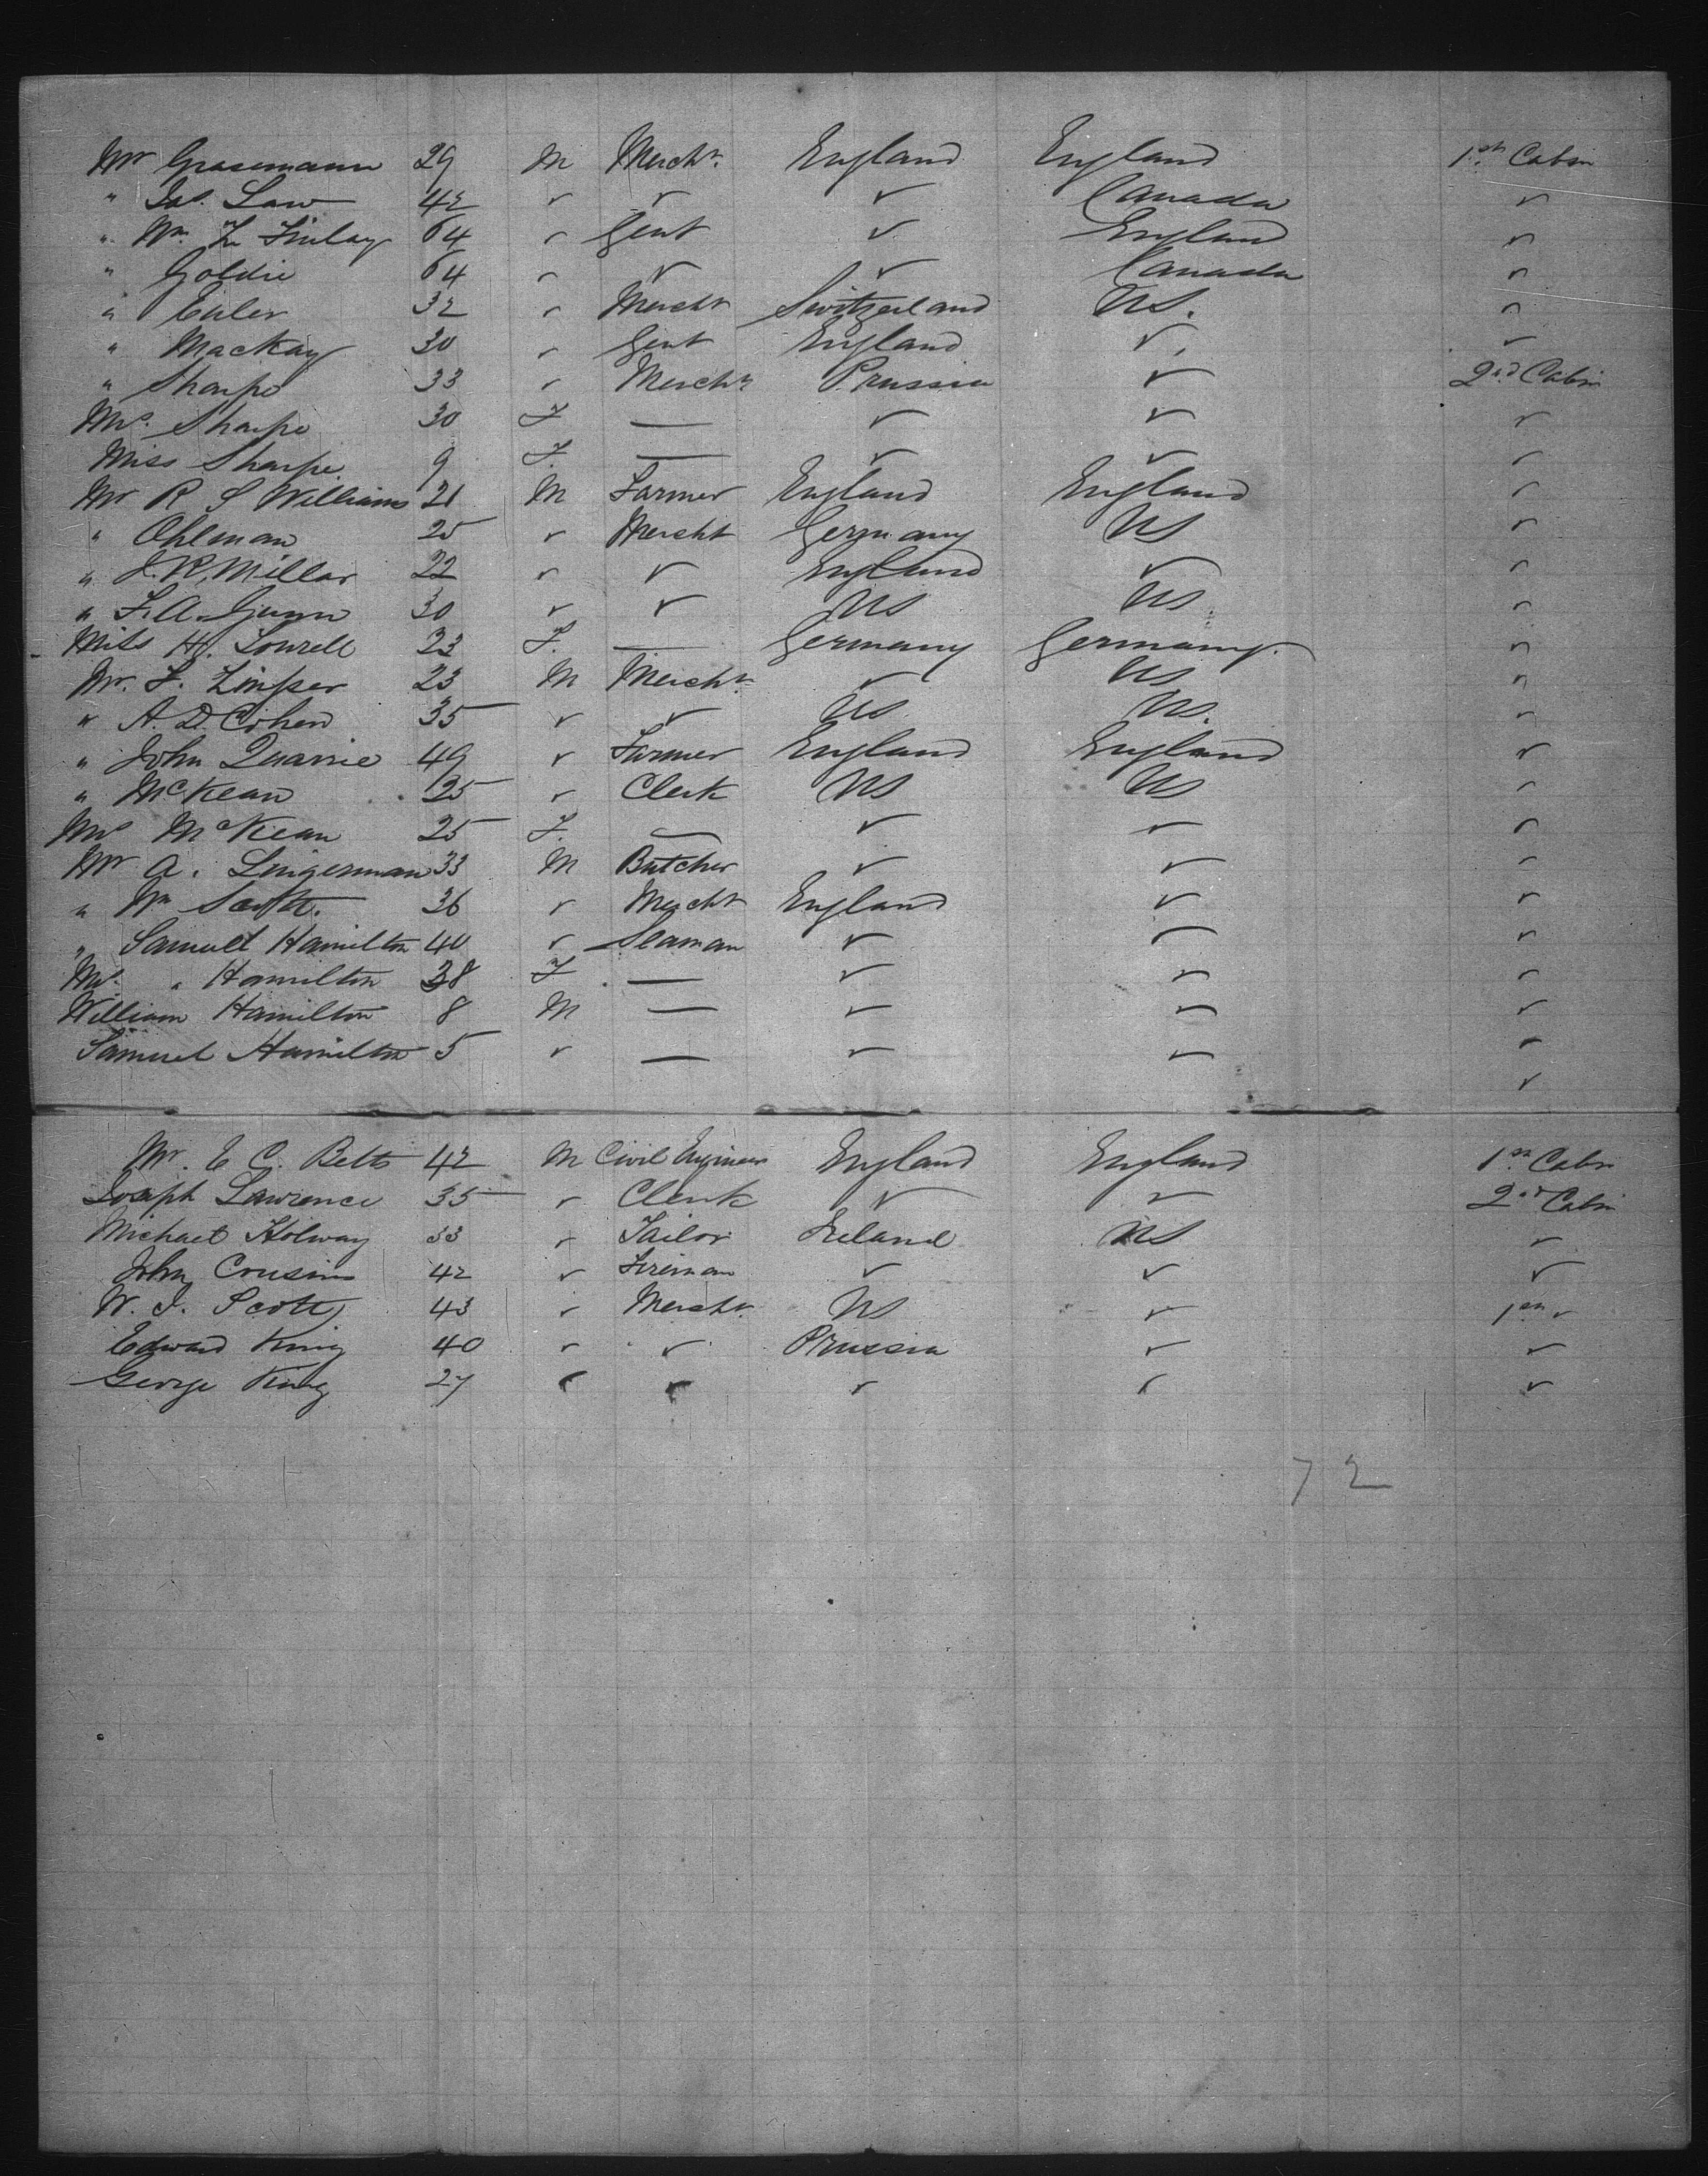 Mr Grasemann 29 M Mercht. England England 1st Cabin
" Jas. Law 42 " " " Canada "
" Wm. L Finlay 64 " Gent " England "
" Goldie 64 " " " Canada "
" Euler 32 " Mercht Switzerland US. "
" Mackay 30 " Gent England " "
" Sharpe 33 " Mercht Prussia " 2nd Cabin
Mrs. Sharpe 30 F — " " "
Miss Sharpe 9 F. — " " "
Mr R S Williams 21 M Farmer England England "
" Ohlman 25 " Mercht Germany US "
" J. R. Millar 22 " " England " "
" F. A. Gunn 30 " " US US. "
Miss H. Lowrell 23 F. — Germany Germany. "
Mr. F. Limper 23 M Mercht. " US "
" A. D. Cohen 35 " " US. US. "
" John Quarrie 49 " Farmer England England "
" McKean 25 " Clerk US US "
Mrs McKean 25 F. — " " "
Mr A. Lingerman 33 M Butcher " " "
" Wm Scott. 36 " Mercht England " "
" Samuel Hamilton 40 " Seaman " " "
Mrs. " Hamilton 38 F — " " "
William Hamilton 8 M — " " "
Samuel Hamilton 5 " — " " "
"
Mr. E C. Betts 42 M Civil Engineer England England 1st Cabin
Joseph Lawrence 35 " Clerk " " 2nd Cabin
Michael Holway 33 " Tailor Ireland US "
John Cousins 42 " Fireman " " "
W. J. Scott 43 " Mercht. US " 1st "
Edward King 40 " " Prussia " "
George King 27 " " " " "
72